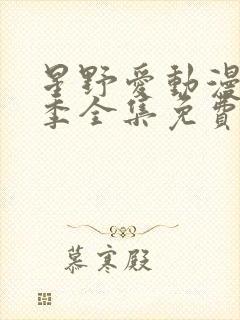 星野愛動漫
季全集免費
慕寒殿